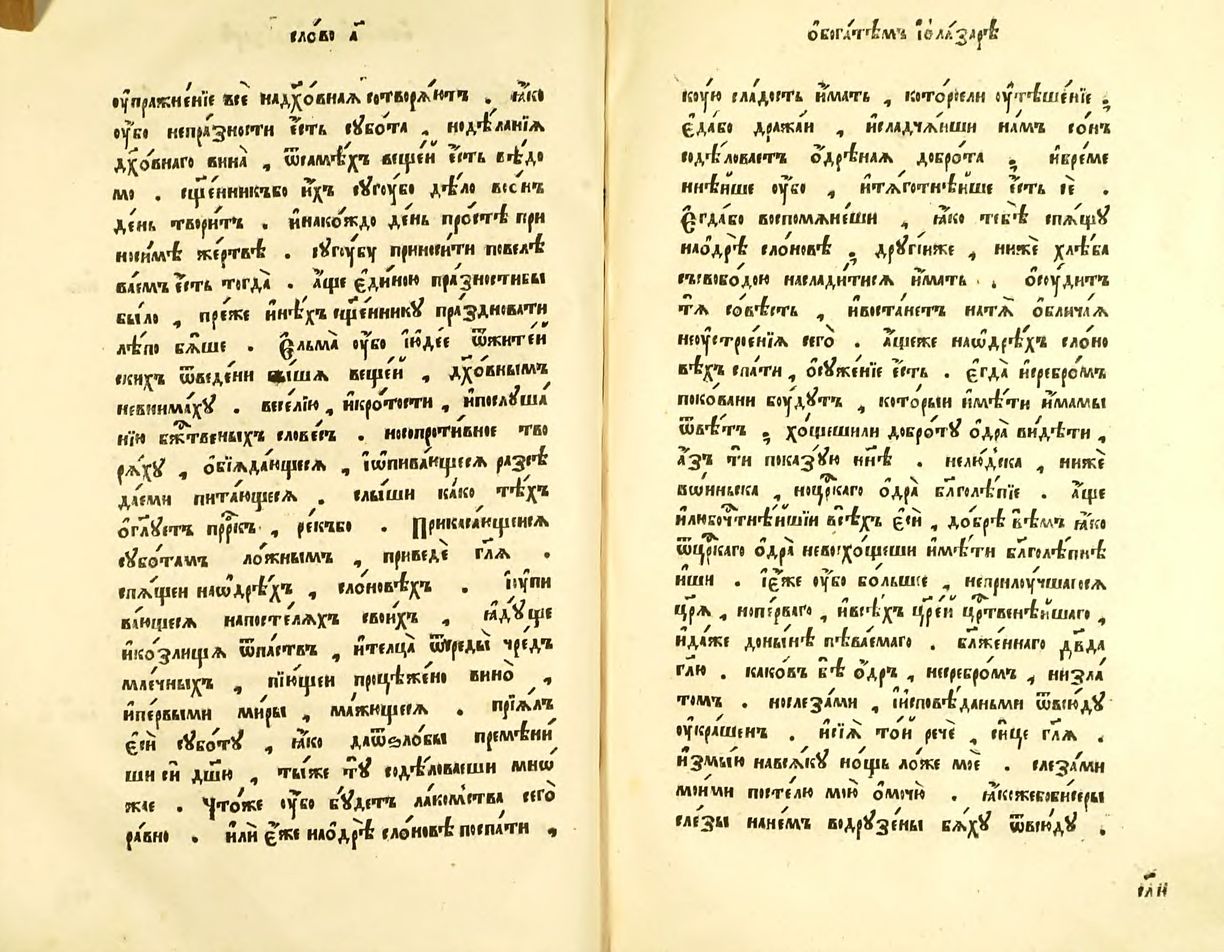 сло́во а҃
оу҆пражне́нїе всѐ надх҃о́внаѧ сотворѧ́ютъ . ꙗ҆́ко
оу҆́бо непра́зности є҆́сть сꙋбо́та , нодѣ́ланїѧ
дх҃о́внаго вина̀ , ѿсамѣ́хъ веще́й є҆́сть вѣ́до
мо . сщ҃е́нникъбо и҆́хъ сꙋгоу́бо дѣ́ло всѐнъ
де́нь твори́тъ . и҆нако́ждо де́нь про́стѣ при
носи́мѣ же́ртвѣ . сꙋгоу́бꙋ приноси́ти повелѣ
ва́емъ є҆́сть тогда̀ . а҆́ще є҆ди́ною пра́зностибы
бы́ло , пре́же и҆нѣ́хъ сщ҃е́нникꙋ пра́здновати
лѣ́по бѧ́ше . Є҆льма̀ оу҆́бо і҆юде́е ѿжите́й
скихъ ѿведе́ни бы́шѧ веще́й , дх҃о́внымъ
невнима́хꙋ . весе́лїю , и҆кро́тости , и҆послꙋша́
нїю бж҃твеныхъ слове́съ . носопроти́вное тво
рѧ́хꙋ , ѻ҆бїѧда́ющесѧ , і҆ѡпива́ющесѧ разсѣ
да́еми пита́ющесѧ . слы́ши ка́ко тѣ́хъ
ѻ҆гл҃ꙋетъ прⷪ҇ркъ , ре́къбо . Прикаса́ющеисѧ
сꙋбо́тамъ ло́жнымъ , приведѐ гл҃ѧ .
спѧ́щеи наѻ҆дрѣ́хъ , сло́новѣхъ . і҆ꙋпи
ва́ющесѧ напостелѧ́хъ свои́хъ , ꙗ҆дꙋ́ще
и҆ко́злищѧ ѿпа́ствъ , и҆телца̀ ѿреды̀ чре́дъ
мле́чныхъ , пїю́щеи процѣ́жено вино̀ ,
и҆пе́рвыми ми́ры , ма́жющесѧ . прїѧ́лъ
є҆сѝ сꙋбо́тꙋ , ꙗ҆́ко даѿѕло́бы премѣни́
ши сѝ дш҃ю , ты́же тꙋ̀ содѣ́ловаеши мнѡ
жае . Что́же оу҆́бо бꙋ́детъ ла́комства сего̀
ра́вно . и҆лѝ є҆́же наѻ҆дрѣ̀ сло́новѣ поспа́ти ,
ѻ҆бога́тѣмъ і҆ѻ҆ла́зарѣ
коую сла́дость и҆́мать , кото́роели оу҆тѣше́нїе ;
є҆да́бо дража́и , и҆сладчѧ́иши на́мъ со́нъ
содѣ́ловаетъ ѻ҆дре́наѧ добро́та ; и҆бре́ме
ннѣ́йше оу҆́бо , и҆тѧ́готнѣйше є҆́сть сѐ .
Є҆гда́бо воспомѧне́ши , ꙗ҆́ко тебѣ̀ спѧ́щꙋ
наѻ҆дрѣ̀ сло́новѣ ; дрꙋгі́иже , нижѐ хлѣ́ба
съсвобо́дою наслади́тисѧ и҆́мать . ѻ҆соу́дитъ
тѧ̀ со́вѣсть , и҆воста́нетъ натѧ̀ ѻ҆блича́ѧ
неоу҆строе́нїѧ сего̀ . а҆́щеже наѡ҆дрѣ́хъ сло́но
вѣхъ спа́ти , ѻ҆сꙋже́нїе є҆́сть . є҆гда̀ и҆сребро́мъ
покова́ни боу́дꙋтъ , кото́рыи и҆мѣ́ти и҆́мамы
ѿвѣ́тъ ; хо́щешили добро́тꙋ ѻ҆дра̀ ви́дѣти ,
а҆́зъ тѝ пока́зꙋю нн҃ѣ . нелю́дска , нижѐ
во́иньска , ноцр҃каго ѻ҆дра̀ бл҃голѣ́пїе . а҆́ще
и҆либоч҃тнѣ́йшїи всѣ́хъ є҆сѝ , до́брѣ вѣ́мъ ꙗ҆́ко
ѿцр҃каго ѻ҆дра̀ невосхо́щеши и҆мѣ́ти бл҃голѣ́пнѣ
йши . і҆є҆́же оу҆́бо бо́льше , неприлоу́чшагосѧ
цр҃ѧ̀ , нопе́рваго , и҆всѣ́хъ цр҃е́й цр҃твенѣ́йшаго ,
и҆да́же доны́нѣ пѣва́емаго . бл҃же́ннаго дв҃да
гл҃ю . како́въ бѣ̀ ѻ҆́дръ , несребро́мъ , низла́
томъ . нослеза́ми , і҆исповѣ́даньми ѿвсю́дꙋ
оу҆кра́шенъ . и҆сїѧ̀ то́й речѐ , си́це гл҃ѧ .
и҆змы́ю навсѧ́кꙋ но́щь ло́же моѐ . слеза́ми
мои́ми посте́лю мою̀ ѻ҆мочю̀ . ꙗ҆́коже́бобисеры
сле́зы нане́мъ водрꙋзе́ны бѧ́хꙋ ѿвсю́дꙋ .
сл҃и